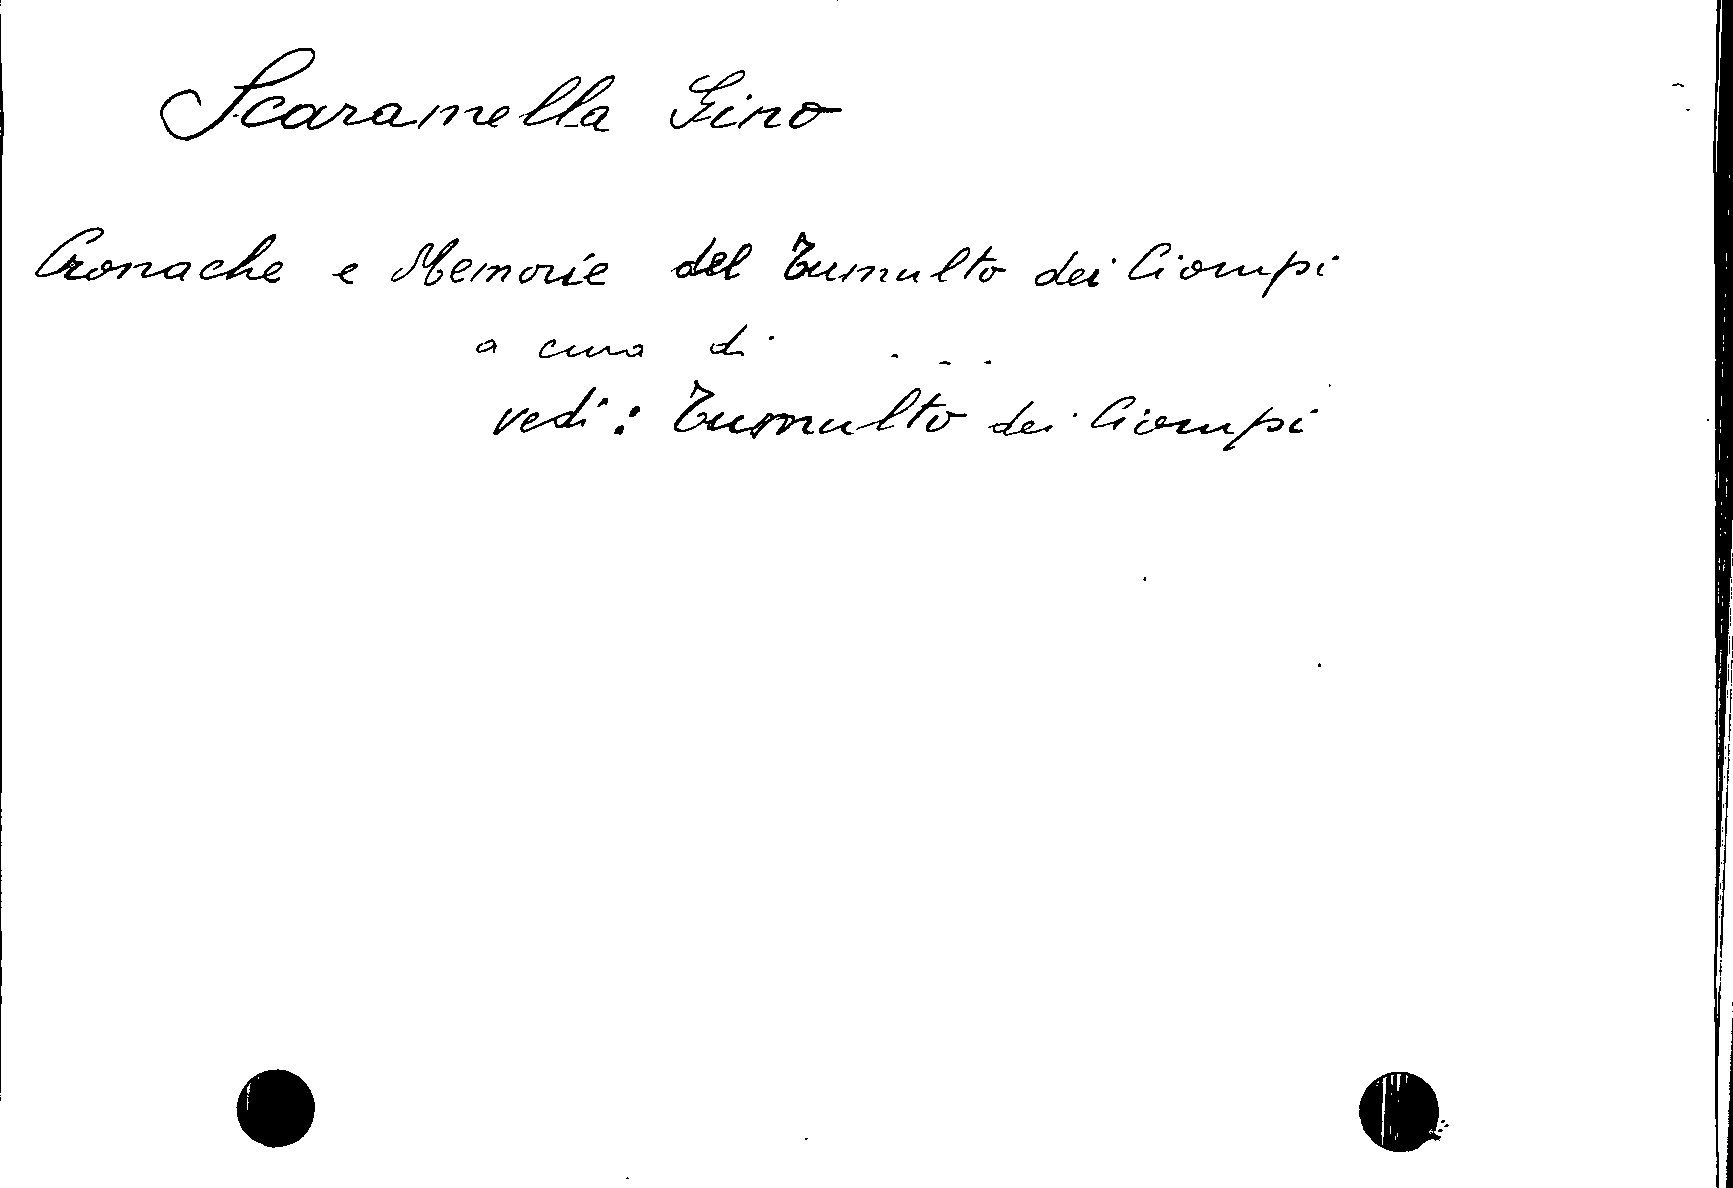 Scaramella Gino
Cronache e Memorie del Tumulto dei Ciompi
a cura di ....
vedi: Tumulto dei Ciompi